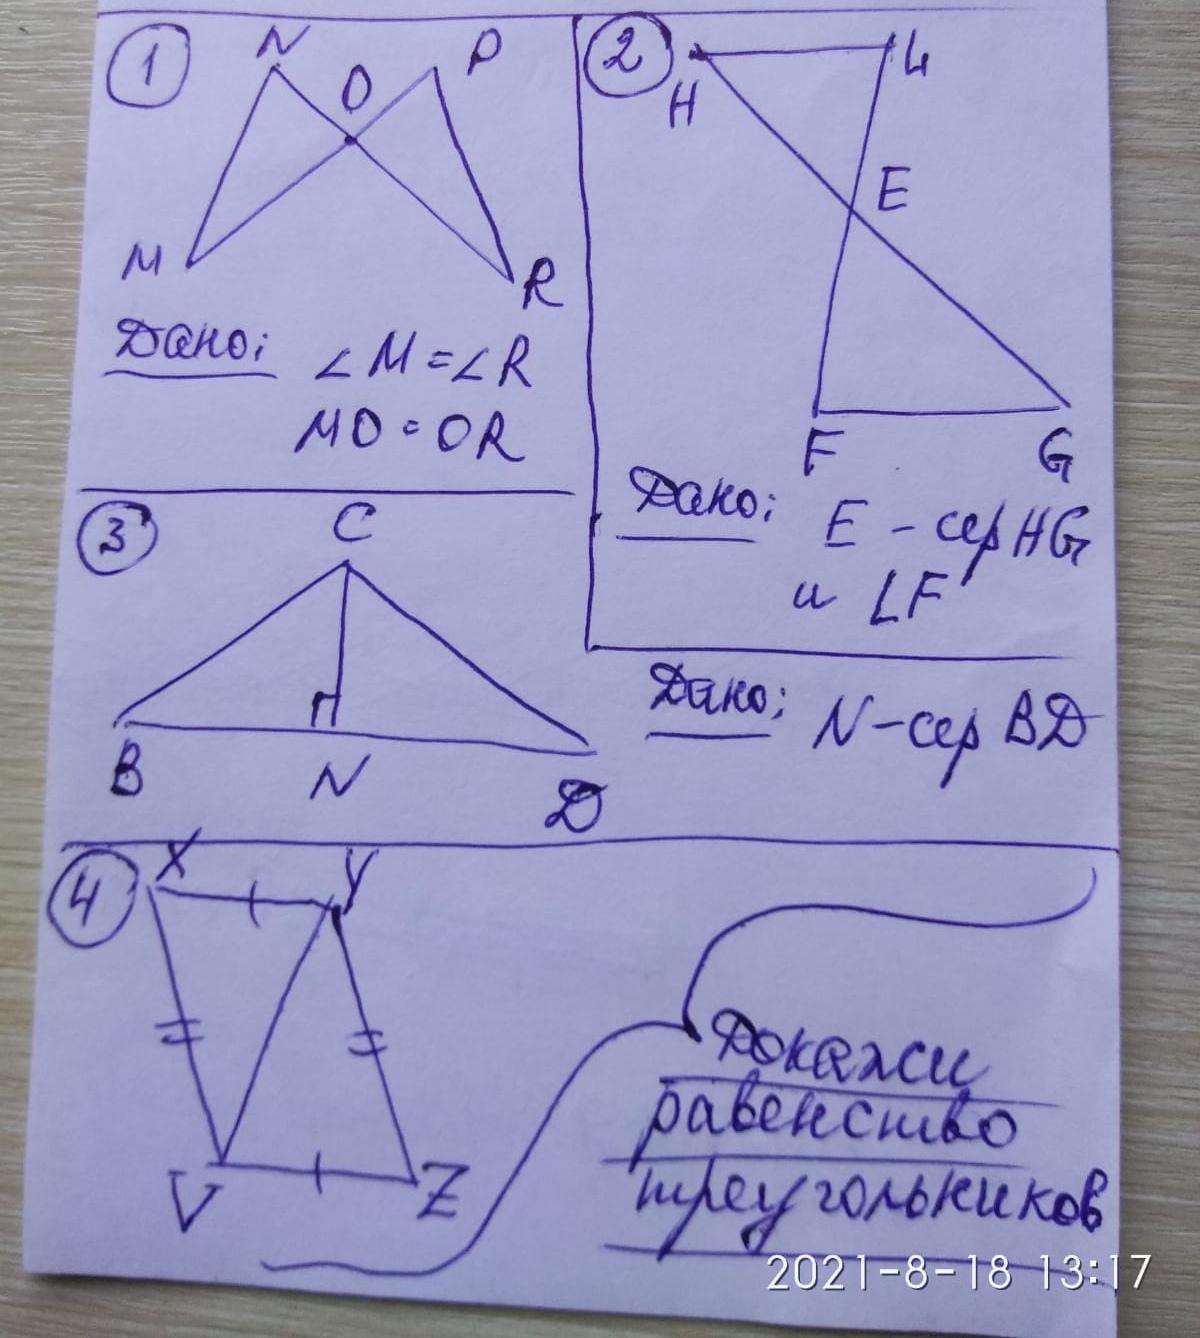 1
N
O
P
M
R
Дано:
∠M=∠R
MO=OR
2
H
L
E
F
G
Дано:
E - сер HG
и LF
3
C
B
N
D
Дано: N-сер BD
4
X
Y
V
Z
Докажи
равенство
треугольников
2021-8-18 13:17